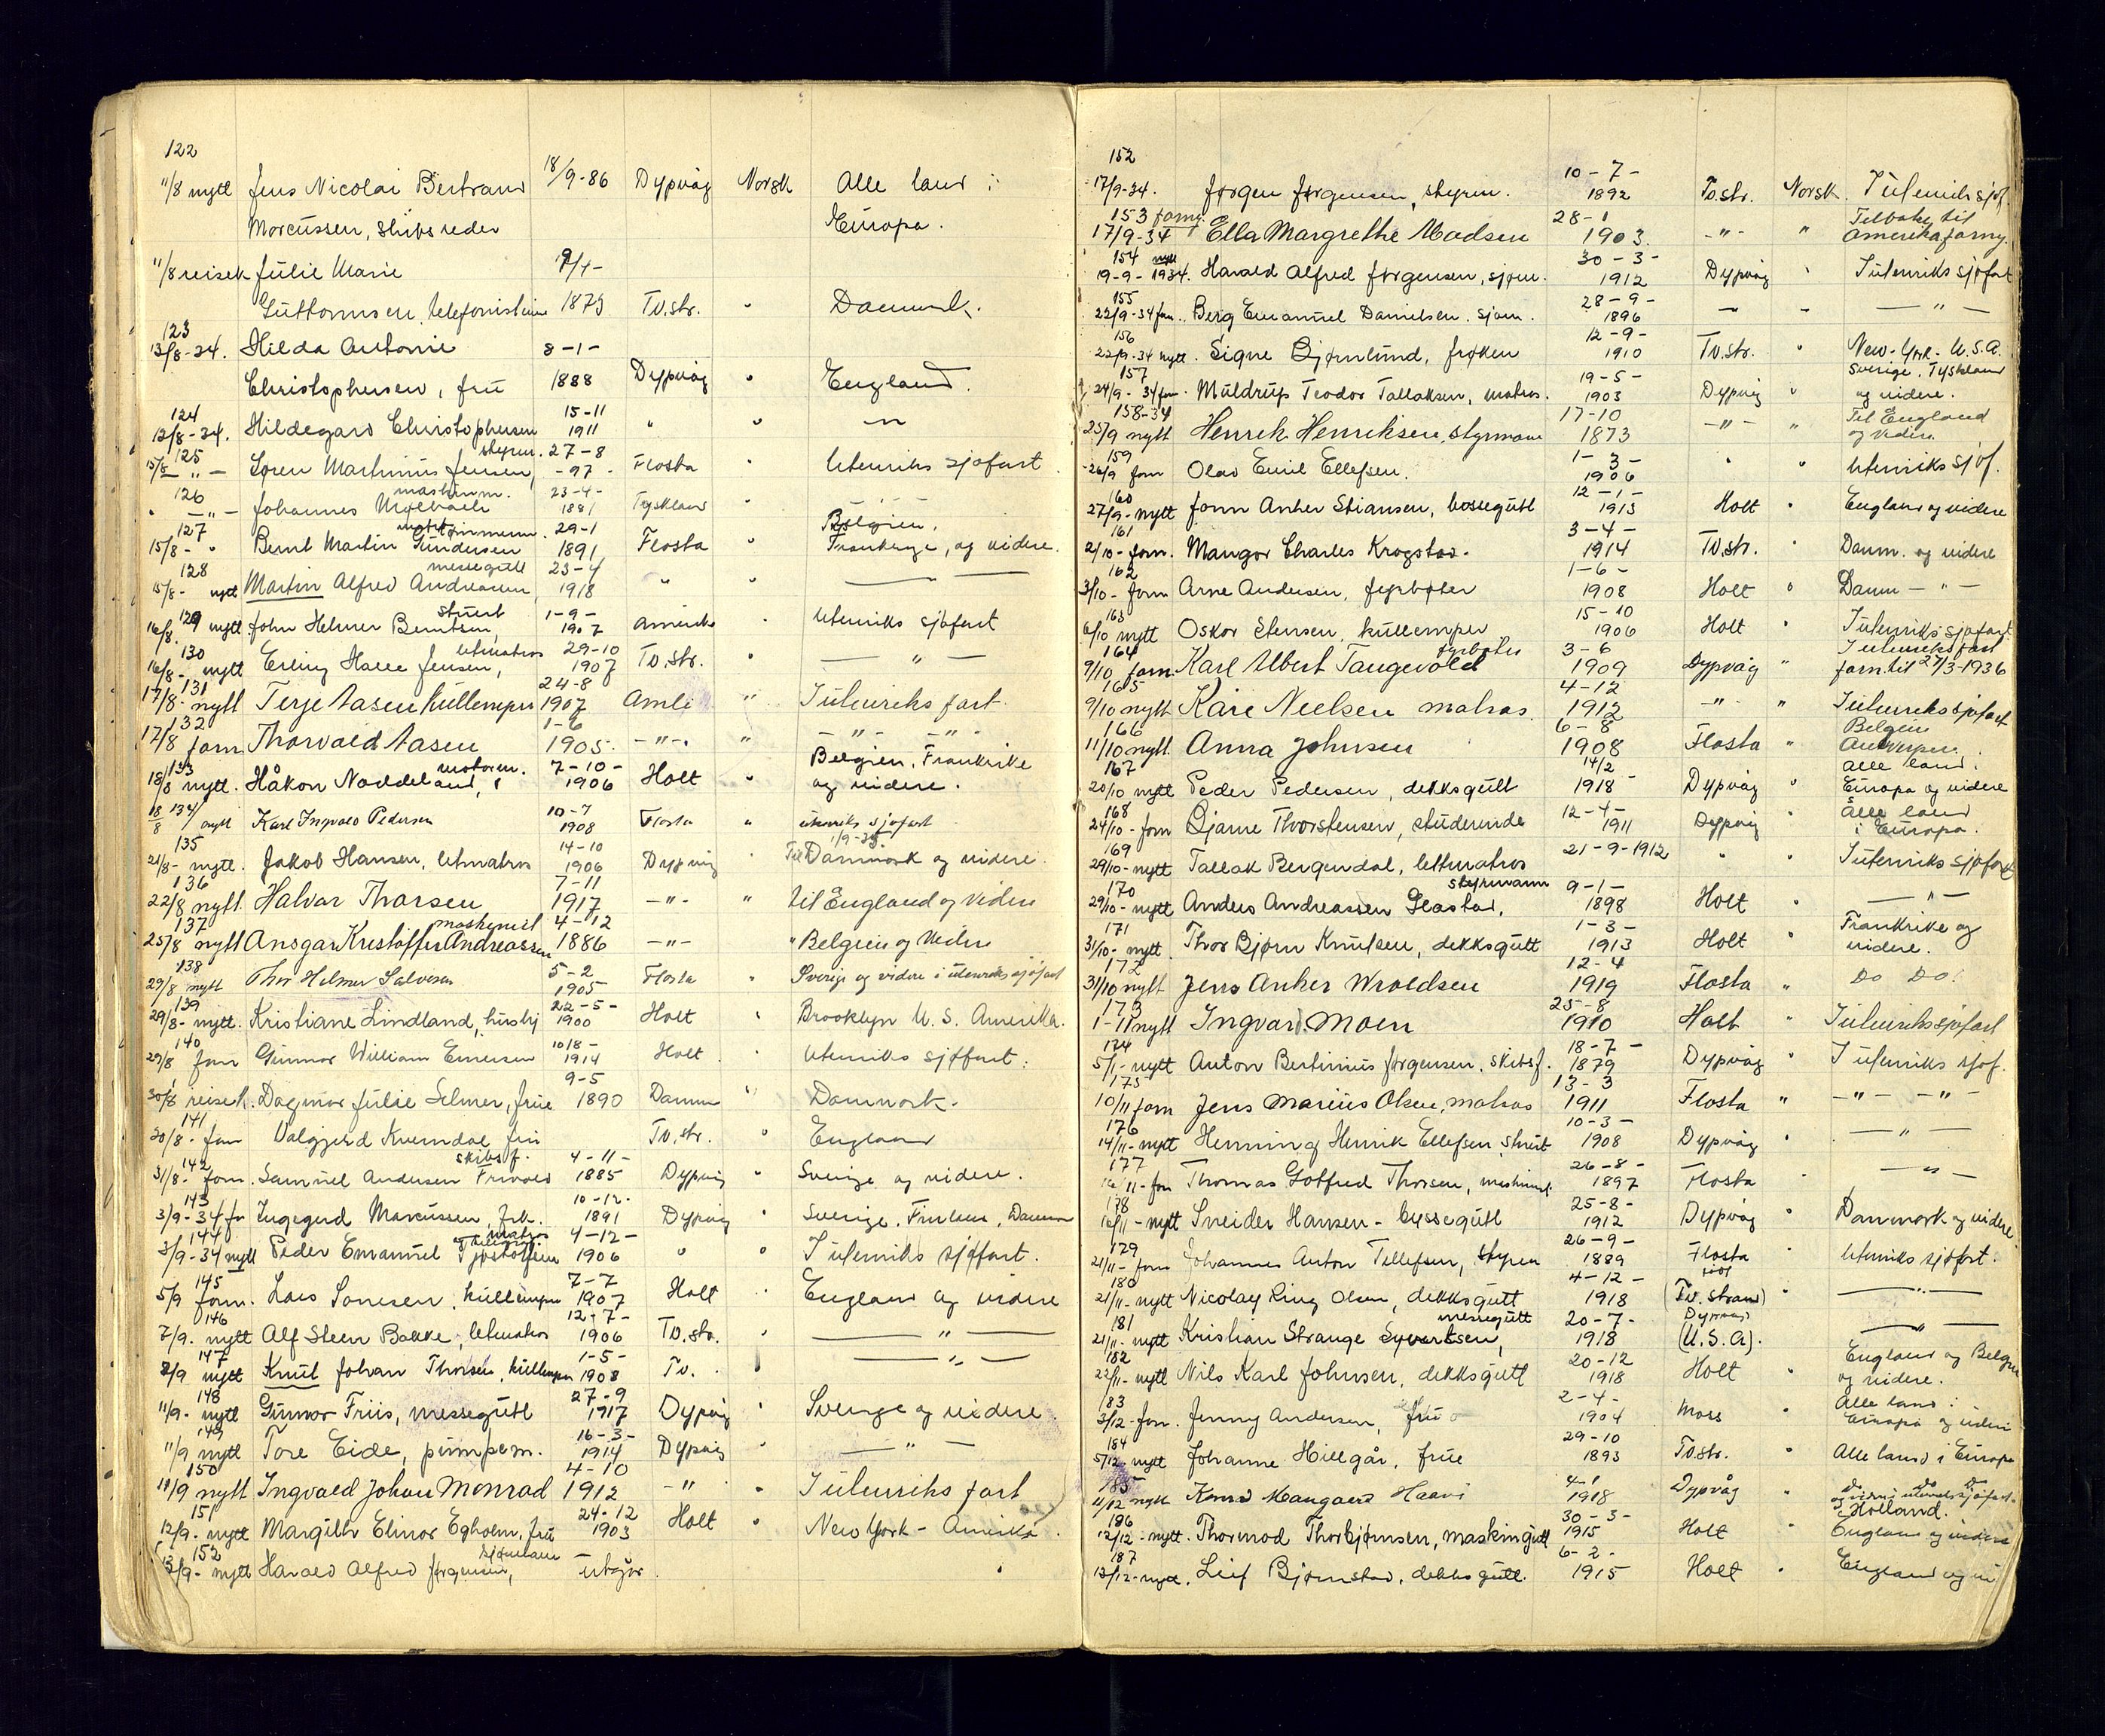 122
11/8 nytt Jens Nicolai Bertrand 18/9-86 Dypvåg Norsk Alle land i
Marcussen, skibsreder Europa.
11/8 reisek Julie Marie 9/4-
Guttormsen, telefonistinne 1879 Tv.str. " Danmark.
123
13/8-34. Hilda Antonie 8-1-
Christophersen, frü 1888 Dypvåg " England.
124 15-11
13/8-34. Hildegard Christophersen 1911 " " "
125 styrm. 27-8
15/8 - " - Søren Martinius Jensen, -97- Flosta " Utenriks sjøfart
126 maskinm. 23-4-
" - " - Johannes 1881 Tyskland " - " -
127 29-1 Belgien,
15/8- " Bernt Martin Gundersen 1891 Flosta " Frankrige, og videre.
128 messegutt 23-4
15/8- nytt Martin Alfred Andreassen, 1918 " " — " —
129 stuert 1-9-
16/8. nytt John Helmer Berntsen, 1907 Amerika " Utenriks sjøfart
130 letmatros 29-10
16/8- nytt Erling Halle Jensen, 1907 Tv.str. " — " —
131 24-8
17/8- nytt Terje Aasen kullemper 1907 Amli " I utenriks fart
132 1-6
17/8 forn Thorvald Aasen 1905. - " - " - " - - " -
133 motorm. 7-10- Belgien, Frankrike
18/8 nytt. Håkon Naddeland, 1906 Holt " og videre.
134 10-7
18/8 nytt Karl Ingvald Pedersen 1908 Flosta " utenriks sjøfart
135 14-10 1/9-35.
21/8- nytt. Jakob Hansen, letmatros 1906 Dypvåg " Til Danmark og videre
136 7-11
22/8 nytt. Halvar Thorsen 1917 - " - " til England og videre
137 maskinist 4-12
25/8 nytt Ansgar Kristoffer Andreassen 1886 - " - " Belgien og videre
138 5-2
29/8 nytt Thor Helmer Salvesen 1905 Flosta " Sverige og videre i utenriks sjøfart
139 22-5-
29/8- nytt. Kristiane Lindland, husbj 1900 Holt " Brooklyn U. S. Amerika.
140 10/8-
29/8 forn Gunnar William Emersen 1914 Holt " Utenriks sjøfart.
9-5
30/8 reisek. Dagmar Julie Selmer, frue 1890 Danm " Danmark.
141
30/8- forn Valgjerd Kverndal frü Tv.str. " England
142 skibsf. 4-11-
31/8- forn. Samuel Andersen 1885 Dypvåg " Sverige og videre.
143 10-12-
3/9-34 fo Ingegerd Marcussen, frk. 1891 Dypvåg " Sverige, Finland, Danmark
144 matros 4-12-
3/9-34 nytt Peder Emanuel Tjostolfsen 1906 " " I utenriks sjøfart.
145 7-7
5/9 forn. Lars Tønnesen, kullemper 1907 Holt " England og videre
146 12-7-
7/9. nytt Alf Steen Bakke, letmatros 1906 Tv.str. " — " —
147 1-5-
8/9 nytt Knut Johan Thorsen, kullemper 1908 Tv. " — " —
148 27-9
11/9- nytt Gunnar Friis, messegutt 1917 Dypvåg " Sverige og videre
149 16-3-
11/9 nytt Tore Eide, pumpem. 1914 Dypvåg " — " —
150 4-10
11/9 nytt Ingvald Johan Monrad 1912 - " " I utenriks fart
151 24-12
12/9- nytt Margith Elinor Egholm, frü 1903 Holt " New York - Amerika.
152 sjømann
13/9- nytt Harald Alfred Jørgensen, utgår.
152 10-7-
17/9-34. Jørgen Jørgensen, styrm. 1892 Tv.str. Norsk. I utenriks sjøf.
153 forny. 28-1 Tilbake til
17/9-34 Ella Margrethe Madsen 1903. - " - " Amerika forny.
154 nytt 30-3-
19-9-1934. Harald Alfred Jørgensen, sjøm. 1912 Dypvåg " I utenriks sjøfart
155 28-9-
22/9-34 forn. Berg Emanuel Danielsen. sjøm. 1896 " " — " —
156 12-9-
22/9-34 nytt. Signe Bjørnlund, frøken 1910 Tv.str. " New-York - U.S.A.
157 19-5- Sverige, Tyskland
24/9-34 forn. Muldrup Teodor Tallaksen, matros. 1903 Dypvåg " og videre.
158-34 17-10 Til England
25/9 nytt Henrik Henriksen, styrmann 1873 - " - " og videre
159 1-3-
26/9 forn Olav Emil Ellefsen. 1906 " " Utenriks sjøf.
160 12-1-
27/9- nytt Jonn Anker Stiansen, byssegutt 1913 Holt " England og videre
161 3-4-
2/10- forn. Mangor Charles Krogstad. 1914 Tv.str. " Danm. og videre
162 1-6-
3/10- forn Arne Andersen, fyrbøter 1908 Holt " Danm — " —
163 15-10
6/10 nytt Oskar Stensen, kullemper 1906 Holt " I utenriks sjøfart
164 fyrbøter 3-6 I utenriks fart
9/10 forn Karl Albert Tangevold 1909 Dypvåg " forn. til 27/3-1936
165 4-12
9/10 nytt Kåre Nielsen matros 1912 - " - " I utenriks sjøfart
166 6-8 Belgien
11/10 nytt. Anna Johnsen 1908 Flosta " Antwerpen.
167 14/2 Alle land.
20/10 nytt Peder Pedersen, dekksgutt 1918 - Dypvåg " Europa og videre
168 12-4- Alle land
24/10- forn Bjarne Thorstensen, studerende 1911 Dypvåg " i Europa.
169 21-9-1912
29/10- nytt Tallak Bergendal, lettmatros " " I utenriks sjøfart
170 styrmann 9-1-
29/10- nytt Anders Andreassen Glastad, 1898 Holt " — " —
171 1-3- Frankrike og
31/10- nytt. Thor Bjørn Knutsen, dekksgutt 1913 Holt " videre.
172 12-4
31/10 nytt Jens Anker Wroldsen 1919 Flosta " Do Do.
173 25-8
1-11 nytt Ingvard Moen 1910 Holt " I utenriks sjøfart
174 18-7-
5/1- nytt Anton Bertinius Jørgensen, skibsf. 1879 Dypvåg " I utenriks sjøf.
175 13-3
10/11 forn Jens Marius Olsen, matros 1911 Flosta " - " - - " -
176 10-3-
14/11- nytt Henning Henrik Ellefsen, stuert 1908 Dypvåg " — " —
177 26-8-
16/11- forn Thomas Gotfred Thorsen, maskinist. 1897 Flosta " — " —
178 25-8-
16/11- nytt Sneider Hansen - byssegutt 1912 Dypvåg " Danmark og videre
179 26-9-
21/11- forn Johannes Anton Tellefsen, styrm 1889 Flosta " Utenriks sjøfart.
180 4-12-
21/11- nytt Nicolay Ring Olsen, dekksgutt 1918 (Tv. strand) " — " —
181 messegutt 20-7- Dypvåg
21/11- nytt Kristian Strange Syvertsen, 1918 (U.S.A). — " —
182 20-12 England og Belgien
22/11- nytt Nils Karl Johnsen, dekksgutt 1918 Holt " og videre.
183 2-4- Alle land i
3/12- forn. Jenny Andersen, frü 1904 Moss " Europa og videre
184 29-10
5/12- nytt Johanne Hillgår, frue 1893 Tv.str. " Alle land i Europa
185 4-1 Do Do Do
11/12 nytt Konrad Mangaard Haavi 1918 Dypvåg " og videre i utenriks sjøfart.
186 30-3- Holland.
12/12- nytt. Thormod Thorbjørnsen, maskingutt 1915 Holt " England og videre
187 6-2-
13/12- nytt. Leif Bjørnstad, dekksgutt. 1915 Holt " England og vi